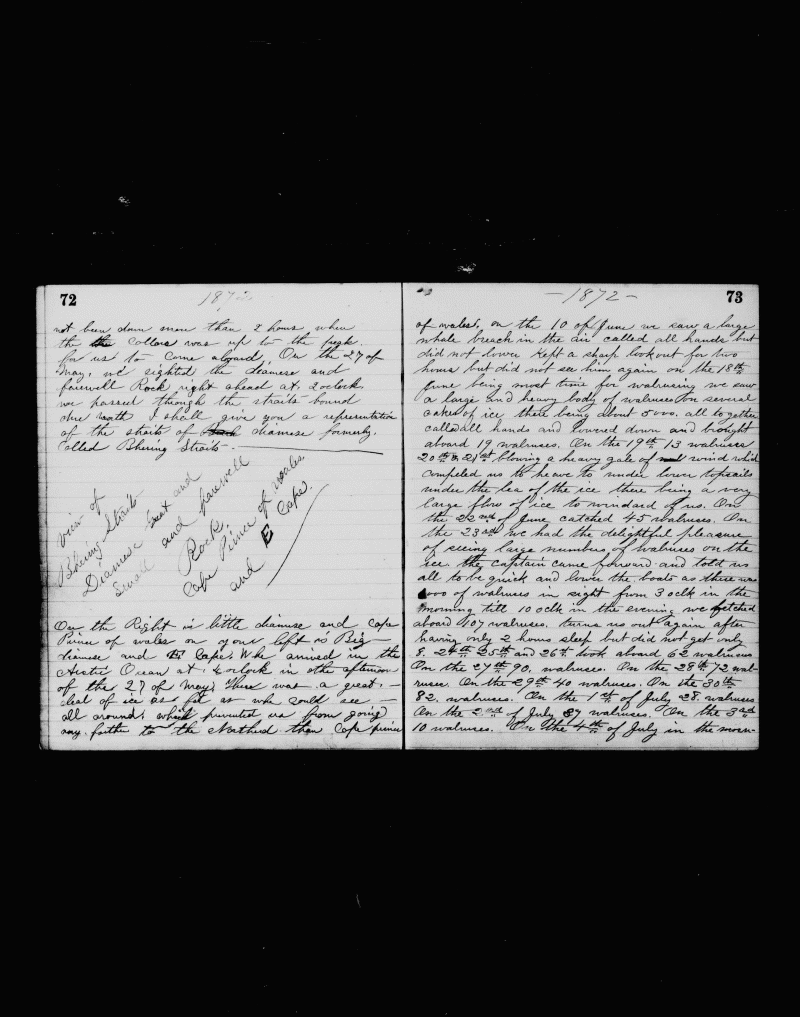 72
1872
not been down more than 2 hours when
the the Collors was up to the peak
for us to come aboard, On the 27 of
May, we sighted the Diamese and
fairwell Rock right ahead at. 2 oclock
we passed through the straits bound
due north I shall give you a representation
of the straits of diamese formerly.
Called Bhering Straits
view of
Bhering Straits
Diamese Great and
Small and fairwell
Rock.
Cape Prince of wales
and E Cape.
On the Right is little diamese and Cape
Prince of wales on your left is Big
diamese and E Cape. Whe arrived in the
Arctic Ocean at 4 oclock in the afternoon
of the 27 of May, There was a great
deal of ice as far as whe could see
all around, which prevented us from going
any farther to the Northerd than Cape Prince
73
- 1872 -
of wales, on the 10 of June we saw a large
whale breach in the air called all hands but
did not lower kept a sharp lookout for two
hours but did not see him again on the 18th
June being most time for walrusing we saw
a large and heavy body of walruses on several
cakes of ice there being about 5000. all together
called all hands and lowered down and brought
aboard 19 walruses. On the 19th 13 walruses
20th & 21st blowing a heavy gale of wind which
compeled us to heave to under lower topsails
under the lea of the ice there being a very
large flow of ice to windard of us. On
the 22nd of June catched 45 walruses. On
the 23rd we had the delightful pleasure
of seeing large numbers of walruses on the
ice. the Captain came forward and told us
all to be quick and lower the boats as there was
1000 of walruses in sight from 3 oclk in the
morning till 10 oclk in the evening we fetched
aboard 107 walruses. turns us out again after
having only 2 hours sleep but did not get only
8. 24th 25th and 26th took aboard 62 walruses
On the 27th 90. walruses. On the 28th 72 wal-
ruses. On the 29th 40 walruses. On the 30th
82. walruses. On the 1th of July 28. walruses
On the 2nd of July 37 walruses. On the 3rd
10 walruses. On the 4th of July in the morn-